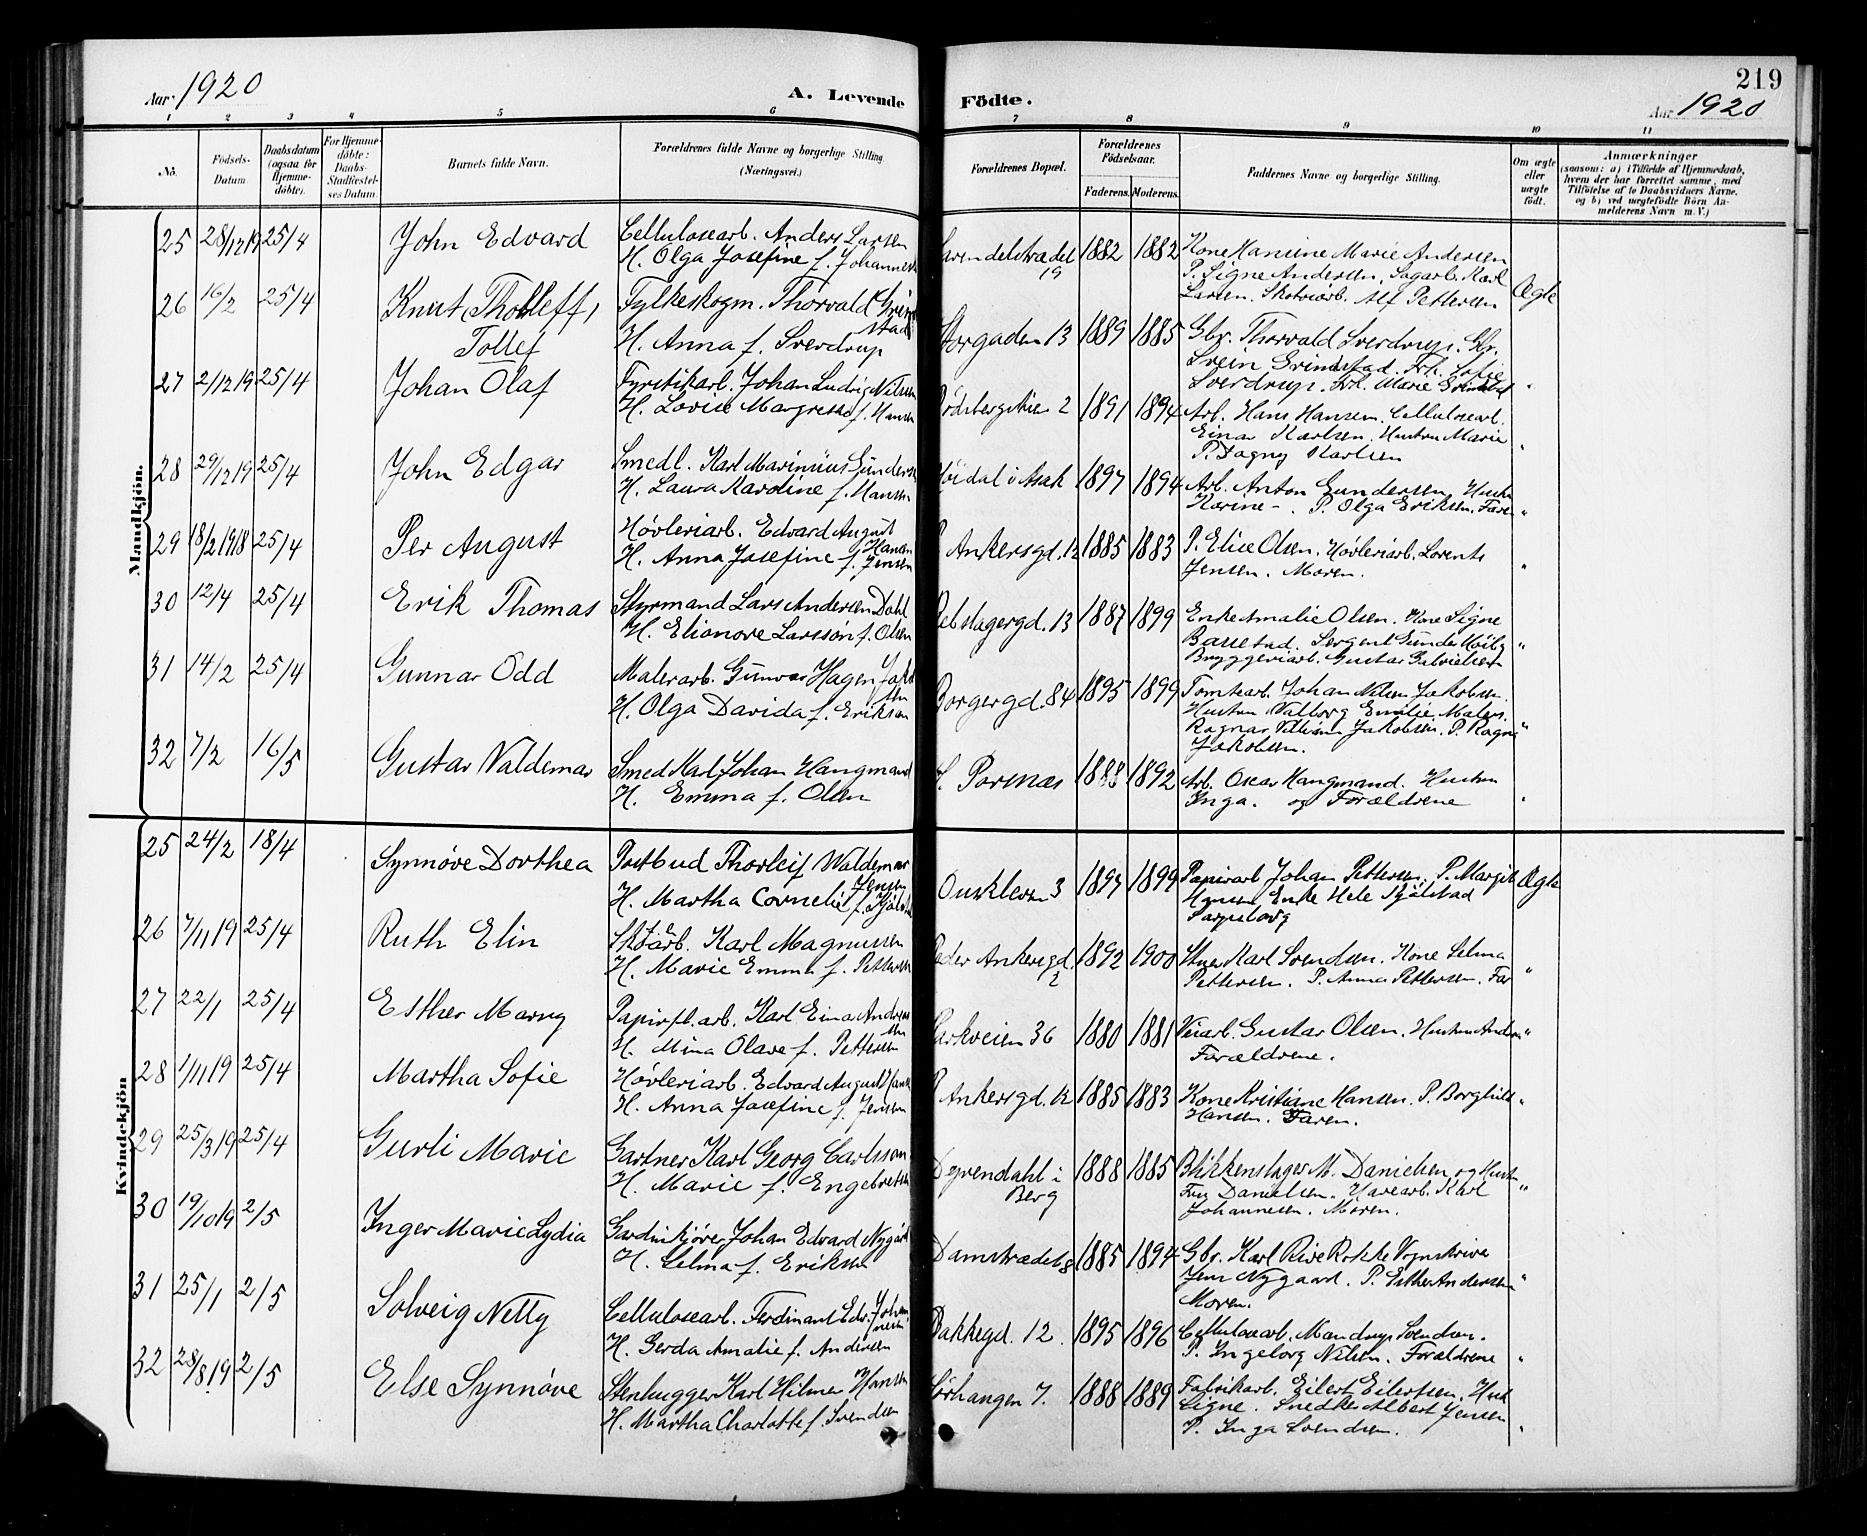 219
Aar 1920 A. Levende Födte. Aar 1920
1 2 3 4 5 6 7 8 9 10 11
No. Födsels-Datum Daabsdatum (ogsaa for Hjemme-döbte). For Hjemme-döbte: Daabs-Stadfæstel-ses Datum. Barnets fulde Navn. Forældrenes fulde Navne og borgerlige Stilling. (Næringsvei.) Forældrenes Bopæl. Forældrenes Födselsaar. Faderens. Moderens. Faddernes Navne og borgerlige Stilling. Om ægte eller uægte födt. Anmærkninger (saasom: a) i Tilfælde af Hjemmedaab, hvem der har forrettet samme, med Tilföielse af to Daabsvidners Navne, og b) ved uægtefödte Börn An-melderens Navn m. V.)
Mandkjön.
25 28/12 19 25/4 John Edvard Cellulosearb. Anders Larsen 1882 1882 Kone Hansine Marie Andersen
H. Olga Josefine f. 19 P. Signe Andersen, Sagarb. Karl
Larsen. Alf Pettersen Ægte
26 16/2 25/4 Knut Tholleff, Fylkeskogm. Thorvald Storgaden 13 1889 1885 Gbr. Thorvald Sverdrup. Gbr.
Tollef H. Anna f. Sverdrup Svein Grindstad. Frk. Sofie
Sverdrup. Frk. Marie "
27 2/12 19 25/4 Johan Olaf Fyrstikarb. Johan Ludvig Nilsen 2 1891 1894 Arb. Hans Hansen. Cellulosearb.
H. Lovise Margrethe f. Hansen Einar Karlsen. Hustru Marie
P. Dagny Karlsen "
28 29/12 19 25/4 John Edgar Smedl. Karl Marinius Høidal i Asak 1897 1894 Arb. Anton Gundersen Hustru
H. Laura Karoline f. Hansen Karine -. P. Olga Eriksen. "
29 18/2 1918 25/4 Per August Høvleriarb. Edvard August Hansen P. Ankersgd. 12 1885 1883 P. Elise Olsen. Høvleriarb. Lorents
H. Anna Josefine f. Jensen Jensen. Moren. "
30 12/4 25/4 Erik Thomas Styrmand Lars Andersen Dahl Rebslagergd. 13 1887 1899 Enke Amalie Olsen. Kone Signe
H. Elionore Larssøn f. Olsen Sergent
Bryggeriarb. Gustav Gabrielsen "
31 14/2 25/4 Gunnar Odd Malerarb. Gunvar Hagen Borgergd. 84 1895 1899 Tomtearb. Johan Nilsen Jakobsen.
H. Olga Davida f. Eriksen Hustru Valborg Emilie. Malers.
Ragnar Jakobsen. P. Ragna
Jakobsen. "
32 7/2 16/5 Gustav Valdemar Smed Karl Johan Hangmand 1888 1892 Arb. Oscar Hangmand. Hustru
H. Emma f. Olsen Inga. og Forældrene "
Kvindekjön
25 24/2 18/4 Synnøve Dorthea Postbud Thorleif Waldemar Jensen 3 1897 1899 Papirarb Johan Pettersen. P. Margit Ægte
H. Martha Cornelie f. Hansen Enke
Sarpsborg
26 7/11 19 25/4 Ruth Elin Karl Magnussen Peder Ankersgd. 2 1892 1900 Karl Svendsen. Kone Selma
H. Marie Emma f. Pettersen Pettersen. P. Anna Pettersen. Far "
27 22/1 25/4 Esther Marny Papirfl.arb. Karl Einar Andreassen Parkveien 36 1880 1881 Veiarb. Gustav Olsen. Hustru "
H. Mina Olave f. Pettersen Forældrene.
28 1/11 19 25/4 Martha Sofie Høvleriarb. Edvard August P. Ankersgd. 12 1885 1883 Kone Kristiane Hansen. P. Borghild "
H. Anna Josefine f. Jensen Hansen. Faren.
29 25/3 19 25/4 Gurli Marie Gartner Karl Georg Carlsson Dyrendahl i 1888 1885 Blikkenslager M. Danielsen og Hustru
H. Marie f. Engebretsen Berg Danielsen. Karl "
Johannesen. Moren.
30 19/10 19 2/5 Inger Marie Lydia Johan Edvard Nygård Damstrædet 8 1885 1894 Gbr. Karl
H. Selma f. Eriksen Nygaard. P. Esther Andersen "
Moren.
31 25/1 2/5 Solveig Netty Cellulosearb. Ferdinant Edv. Johannesen Bakkegd. 12 1895 1896 Cellulosearb. Mandrup Svendsen.
H. Gerda Amalie f. Andersen P. Ingeborg Nilsen. Forældrene "
32 28/8 19 2/5 Else Synnøve Stenhugger Karl Hilmer Hansen 7. 1888 1889 Fabrikarb. Eilert Eilertsen.
H. Martha Charlotte f. Svendsen Signe. Snedker Albert Jensen
P. Inga Svendsen. "